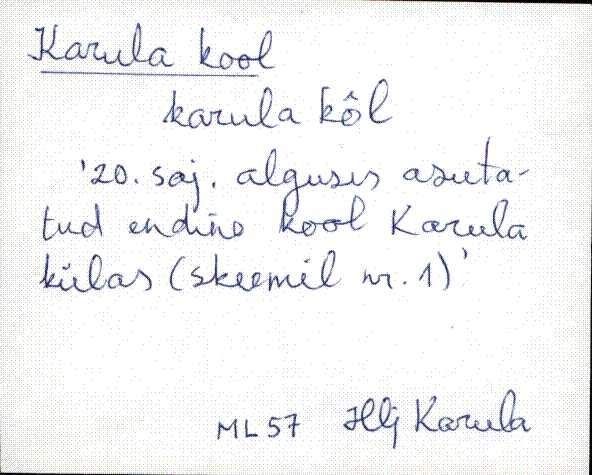 Karula kool
karula kôl
'20. saj. alguses asuta-
tud endine kool Karula
külas (skeemil nr. 1)'
ML 57 Hlj Karula